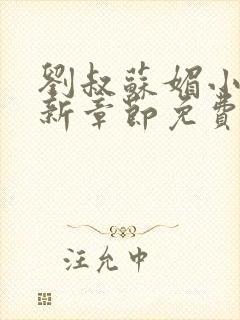 劉叔蘇媚小
新章節免費
汪允中